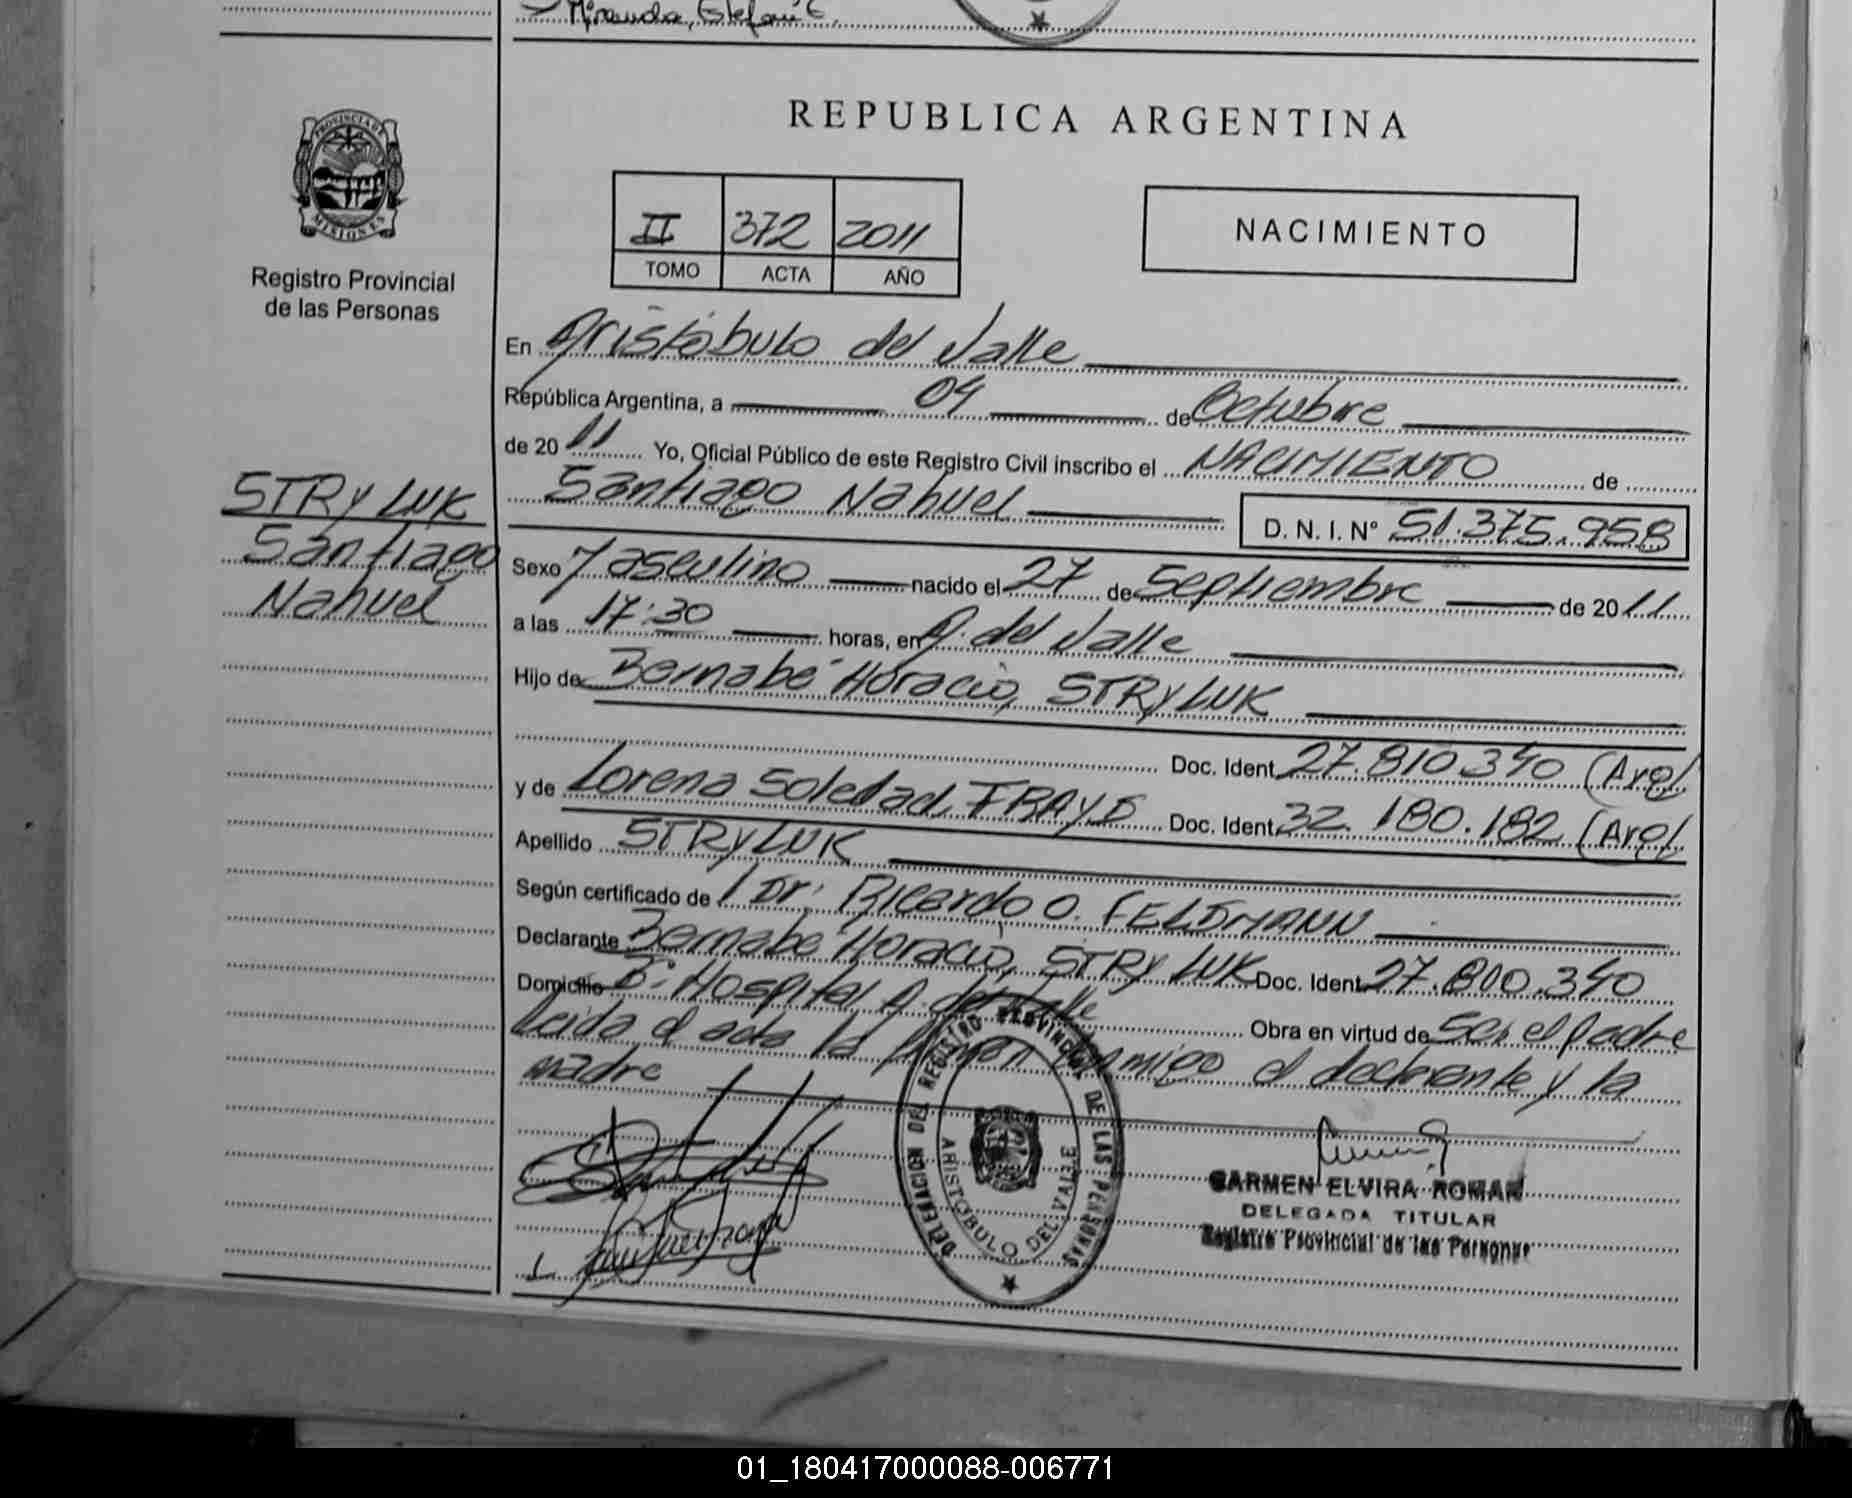 Miranda, Estefani E.
REPUBLICA ARGENTINA
PROVINCIA DE
MISIONES
Registro Provincial
de las Personas
II 372 2011
TOMO ACTA AÑO
NACIMIENTO
En Aristóbulo del Valle
República Argentina, a 04 de Octubre
de 2011 Yo, Oficial Público de este Registro Civil inscribo el NACIMIENTO de
Santiago Nahuel
D. N. I. Nº 51.375.958
STRYLUK
Santiago
Nahuel
Sexo Masculino nacido el 27 de Septiembre de 2011
a las 17:30 horas, en A. del Valle
Hijo de Bernabé Horacio, STRYLUK
Doc. Ident. 27.810.340 (Arg)
y de Lorena Soledad, Doc. Ident. 32.180.182 (Arg)
Apellido STRYLUK
Según certificado de Dr. Ricardo O. FELDMANN
Declarante Bernabé Horacio, STRYLUK Doc. Ident. 27.800.340
Domicilio Bº Hospital A. del Valle
Obra en virtud de Ser el padre
Leida el acta la firman conmigo el declarante y la
madre
DELEGACION DEL REGISTRO PROVINCIAL DE LAS PERSONAS
ARISTOBULO DEL VALLE
CARMEN ELVIRA ROMAN
DELEGADA TITULAR
Registro Provincial de las Personas
01_180417000088-006771